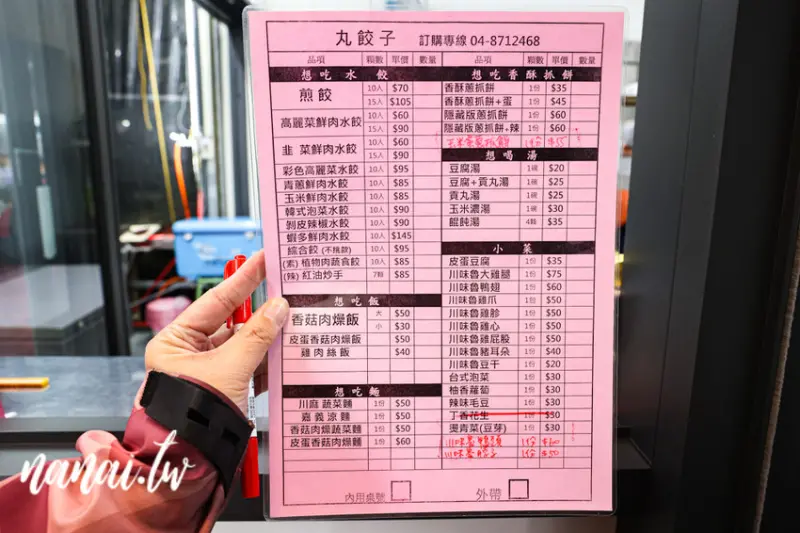 丸餃子 訂購專線 04-8712468
品項 顆數 單價 數量
想吃水餃
煎餃 10入 $70
15入 $105
高麗菜鮮肉水餃 10入 $60
15入 $90
韭菜鮮肉水餃 10入 $60
15入 $90
彩色高麗菜水餃 10入 $95
青蔥鮮肉水餃 10入 $85
玉米鮮肉水餃 10入 $85
韓式泡菜水餃 10入 $90
剝皮辣椒水餃 10入 $90
蝦多鮮肉水餃 10入 $145
綜合餃 (不挑款) 10入 $95
(素) 植物肉蔬食餃 10入 $85
(辣) 紅油炒手 7顆 $85
想吃飯
香菇肉燥飯 大 $50
小 $30
皮蛋香菇肉燥飯 $50
雞肉絲飯 $40
想吃麵
川麻蔬菜麵 1份 $50
嘉義涼麵 1份 $50
香菇肉燥蔬菜麵 1份 $50
皮蛋香菇肉燥麵 1份 $60
品項 顆數 單價 數量
想吃香酥抓餅
香酥蔥抓餅 1份 $35
香酥蔥抓餅+蛋 1份 $45
隱藏版蔥抓餅 1份 $60
隱藏版蔥抓餅+辣 1份 $60
1份 $55
想喝湯
豆腐湯 1碗 $20
豆腐+貢丸湯 1碗 $25
貢丸湯 1碗 $25
玉米濃湯 1碗 $30
餛飩湯 4顆 $35
小菜
皮蛋豆腐 1份 $35
川味魯大雞腿 1份 $75
川味魯鴨翅 1份 $60
川味魯雞爪 1份 $50
川味魯雞胗 1份 $50
川味魯雞心 1份 $50
川味魯雞屁股 1份 $50
川味魯豬耳朵 1份 $40
川味魯豆干 1份 $20
台式泡菜 1份 $30
柚香蘿蔔 1份 $30
辣味毛豆 1份 $30
丁香花生 1份 $50
燙青菜(豆芽) 1份 $30
1份 $60
1份 $50
內用桌號
外帶
nanai.tw